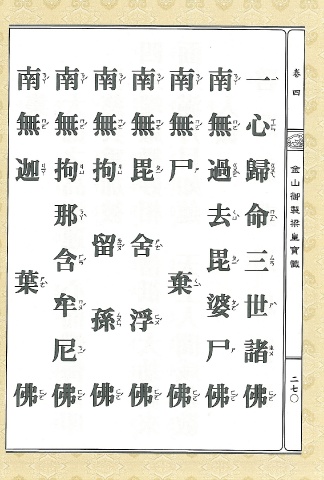 卷四
金山御製梁皇寶懺
二七〇
一心歸命三世諸佛
南無過去毘婆尸佛
南無尸棄佛
南無毘舍浮佛
南無拘留孫佛
南無拘那含牟尼佛
南無迦葉佛